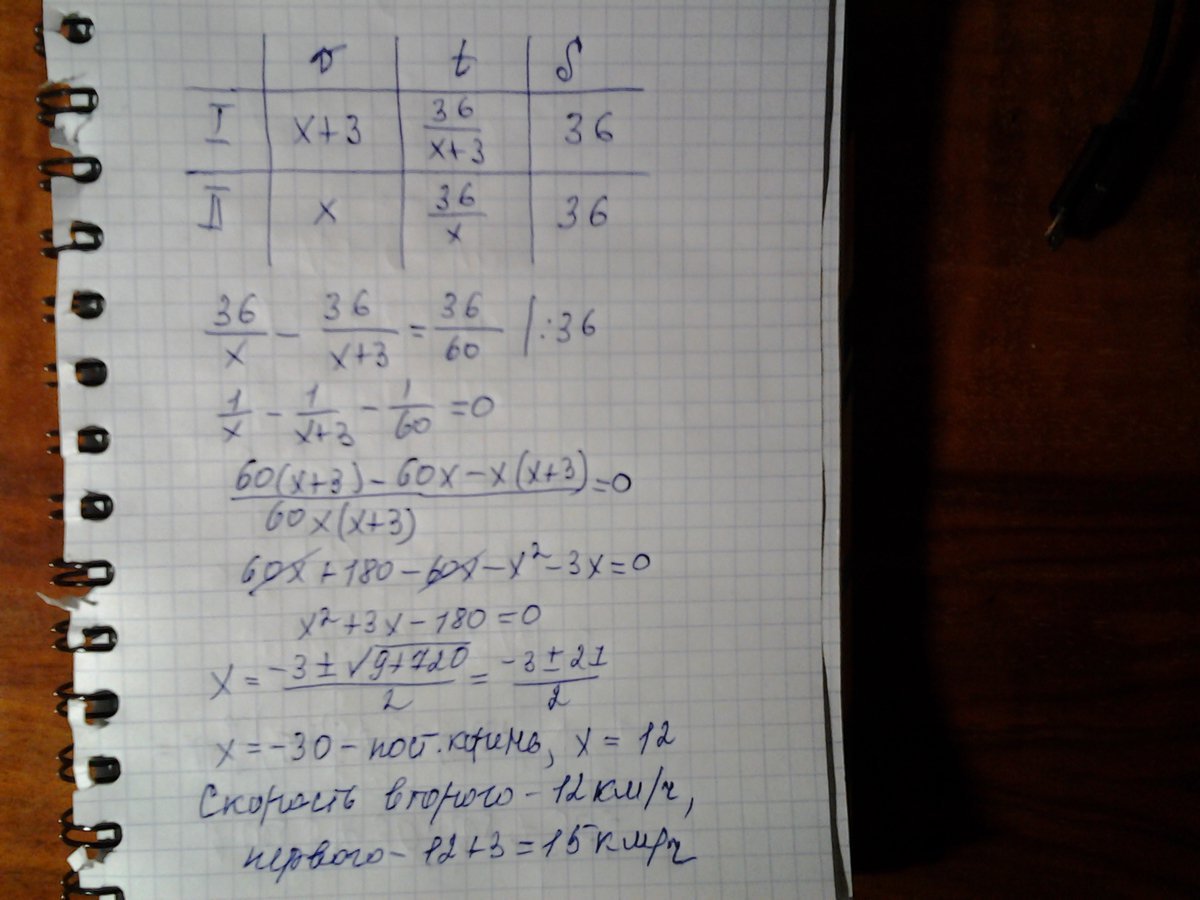 v t S
I x+3 36/(x+3) 36
II x 36/x 36
36/x - 36/(x+3) = 36/60 |:36
1/x - 1/(x+3) - 1/60 = 0
(60(x+3) - 60x - x(x+3))/(60x(x+3)) = 0
60x + 180 - 60x - x² - 3x = 0
x² + 3x - 180 = 0
x = (-3 ± √(9+720))/2 = (-3 ± 21)/2
x = -30 - пост. корень, x = 12
Скорость второго - 12 км/ч,
первого - 12+3 = 15 км/ч